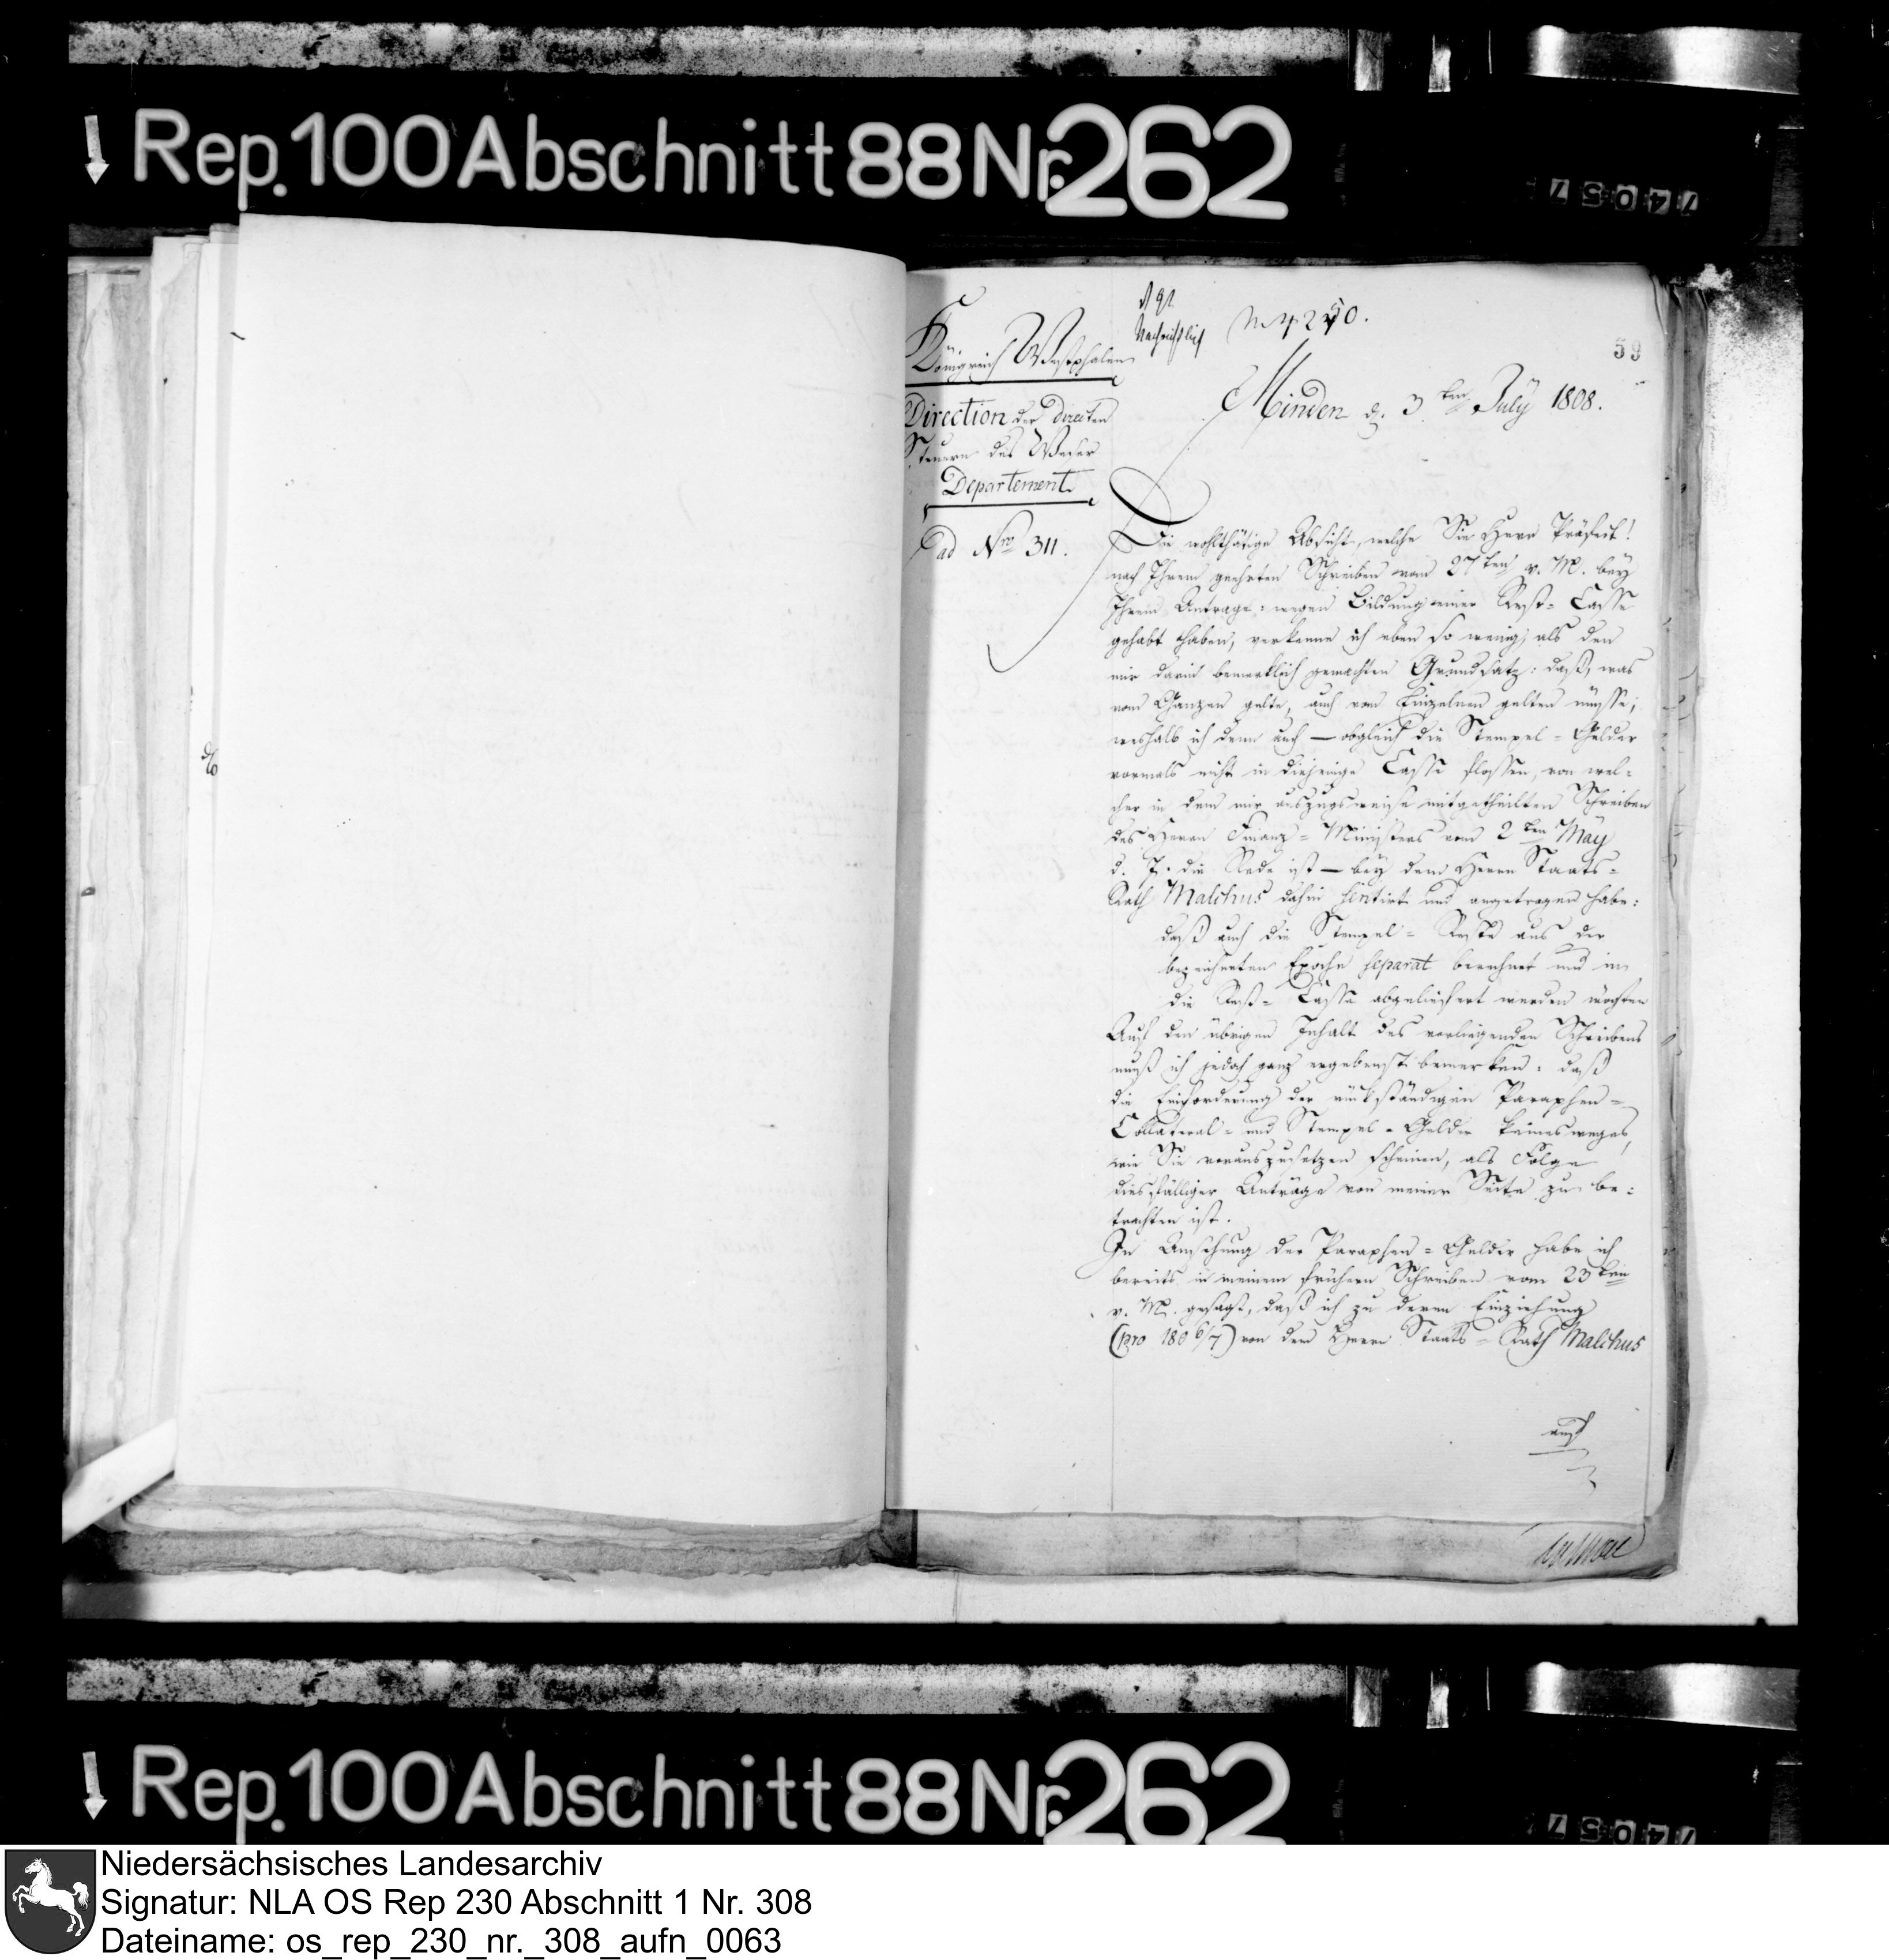 Rep. 100 Abschnitt 88 Nr. 262
74057
Nachrichtlich
N. 4250.
59
Königreich Westphalen
Direction der directen
Steuern des Weser
Departement.
ad Nro 311.
Minden d. 3ten July 1808.
Die wohlthätige Absicht, welche Sie Herr Präfect!
nach Ihrem geehrten Schreiben vom 27ten v. M. bey
Ihrem Antrage: wegen Bildung einer Rest-Casse
gehabt haben, verkenne ich eben so wenig, als den
mir darin bemerklich gemachten Grundsatz: daß, was
vom Ganzen gelte, auch vom Einzelnen gelten müsse;
weshalb ich denn auch — obgleich die Stempel-Gelder
vormals nicht in diejenige Casse flossen, von wel-
cher in dem mir auszugsweise mitgetheilten Schreiben
des Herrn Finanz-Ministers vom 2ten May
d. J. die Rede ist — bey dem Herrn Staats-
Rath Malchus dahin sentirt und angetragen habe:
daß auch die Stempel-Reste aus der
bezeichneten Epoche separat berechnet und in
die Rest-Casse abgeliefert werden möchten
Auf den übrigen Inhalt des vorliegenden Schreibens
muß ich jedoch ganz ergebenst bemerken: daß
die Einforderung der rückständigen Paraphen-
Collateral- und Stempel-Gelder keinesweges,
wie Sie vorauszusetzen scheinen, als Folge
diesfälliger Anträge von meiner Seite zu be-
trachten ist.
In Ansehung der Paraphen-Gelder habe ich
bereits in meinem frühern Schreiben vom 23ten
v. M. gesagt, daß ich zu deren Einziehung
(pro 1806/7) von dem Herrn Staats-Rath Malchus
Rep. 100 Abschnitt 88 Nr. 262
74057
Niedersächsisches Landesarchiv
Signatur: NLA OS Rep 230 Abschnitt 1 Nr. 308
Dateiname: os_rep_230_nr._308_aufn_0063